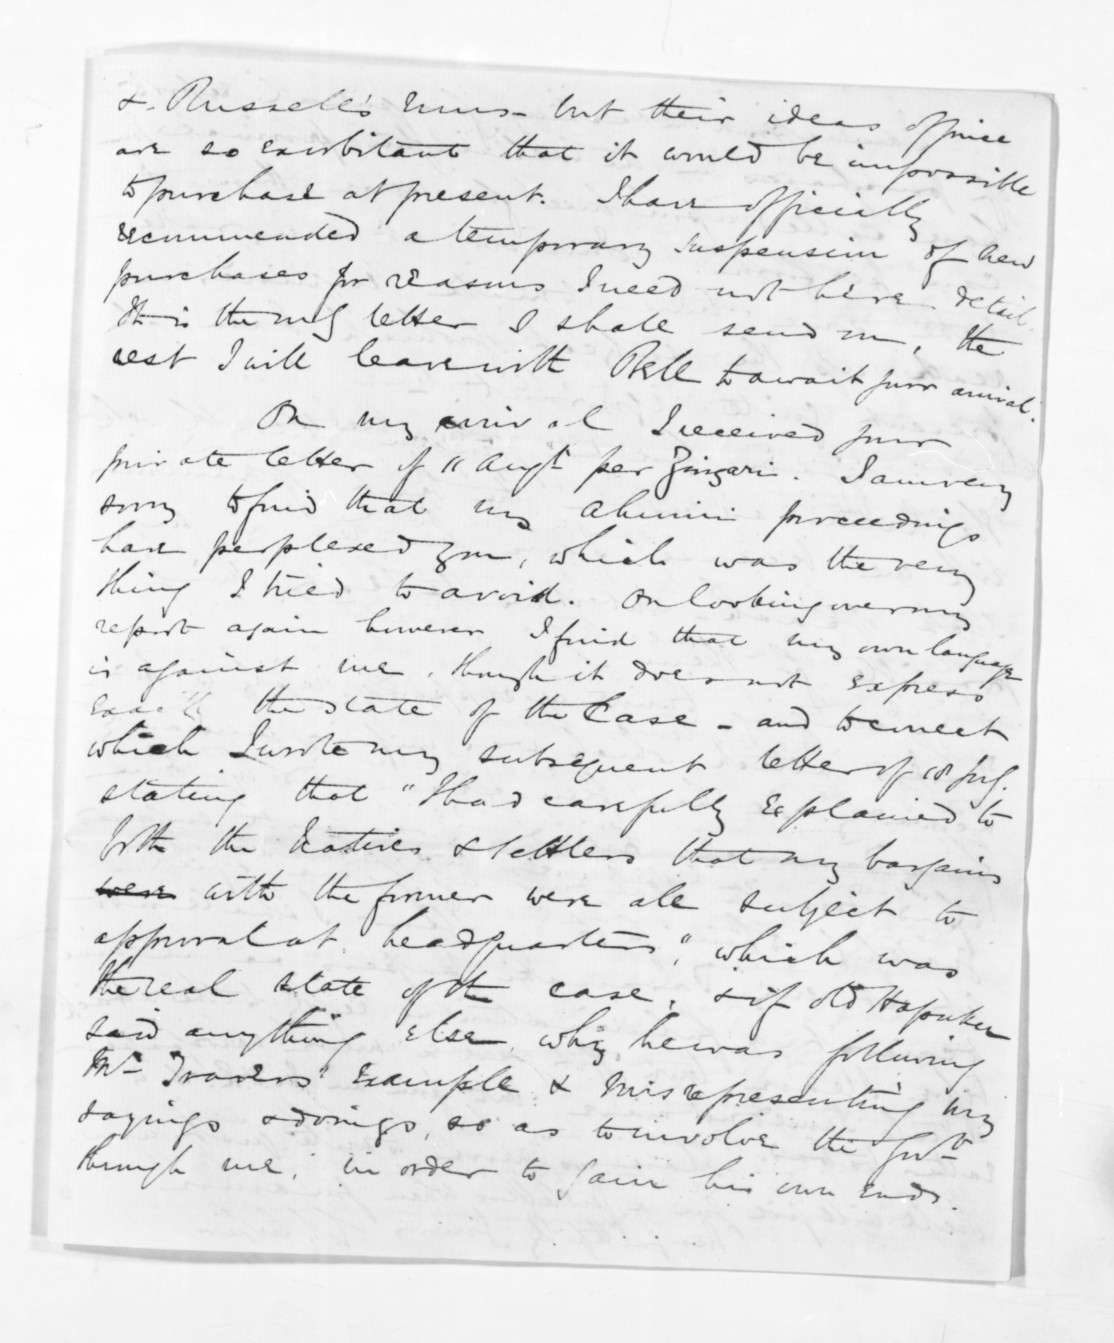 & Russell's runs - but their ideas of price
are so exorbitant that it would be impossible
to purchase at present. I have officially
recommended a temporary suspension of new
purchases for reasons I need not here detail.
It is the only letter I shall send on, the
rest I will leave with Bell to await your arrival.
On my arrival I received your
private letter of 11 Augt. per Zingari. I am very
sorry to find that my Ahuriri proceedings
have perplexed you, which was the very
thing I tried to avoid. On looking over my
report again however I find that my own language
is against me, though it does not express
exactly the state of the Case - and to correct
which I wrote my subsequent letter of 18 July.
stating that "I had carefully explained to
both the Natives & Settlers that my bargains
were with the former were all subject to
approval at headquarters", which was
the real state of the case, & if old Hapuku
said anything else, why he was following
Mr. Travers' Example & misrepresenting my
sayings & doings, so as to involve the Govt.
through me, in order to gain his own ends.